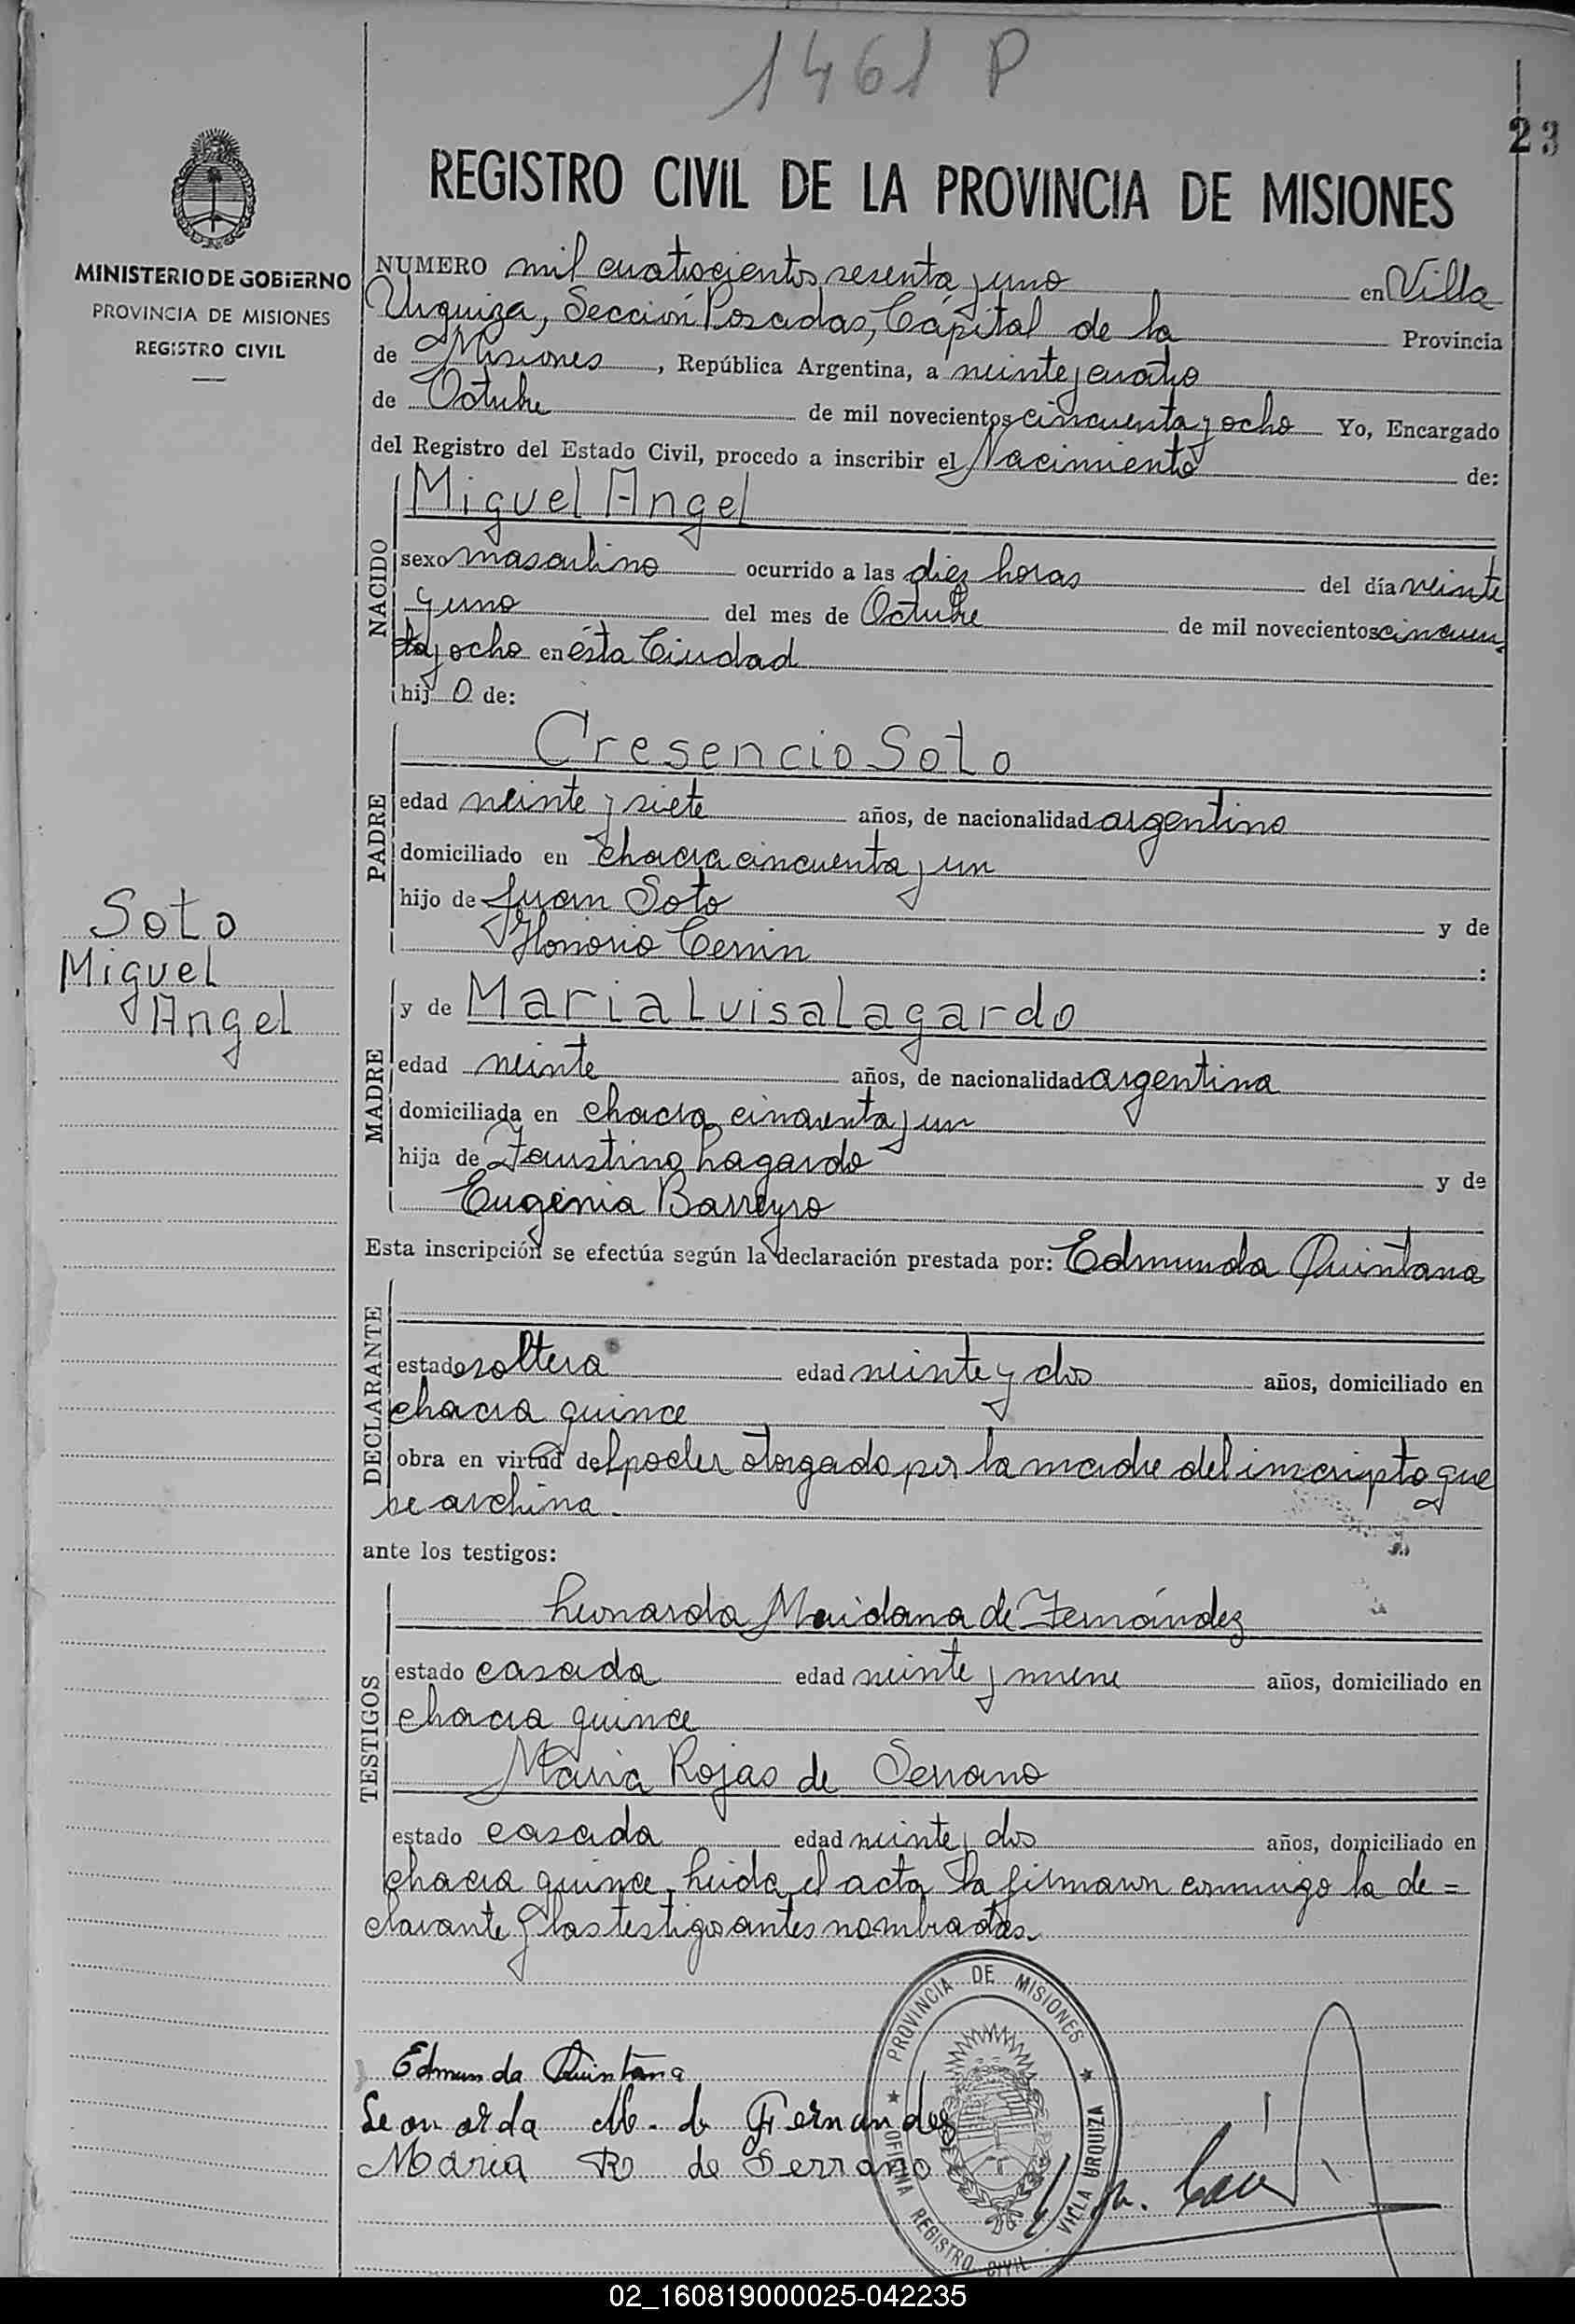 1461 P
23
REGISTRO CIVIL DE LA PROVINCIA DE MISIONES
MINISTERIO DE GOBIERNO
PROVINCIA DE MISIONES
REGISTRO CIVIL
NUMERO mil cuatrocientos sesenta y uno en Villa
Urquiza, Sección Posadas, Cápital de la Provincia
de Misiones, República Argentina, a veinte y cuatro
de Octubre de mil novecientos cincuenta y ocho Yo, Encargado
del Registro del Estado Civil, procedo a inscribir el Nacimiento de:
NACIDO
Miguel Angel
sexo masculino ocurrido a las diez horas del día veinte
y uno del mes de Octubre de mil novecientos cincuen
ta y ocho en ésta Ciudad
hijo de:
PADRE
Cresencio Soto
edad veinte y siete años, de nacionalidad argentino
domiciliado en chacra cincuenta y un
hijo de Juan Soto y de
Honorio Cenin:
Soto
Miguel
Angel
MADRE
y de Maria Luisa Lagardo
edad veinte años, de nacionalidad argentina
domiciliada en chacra cincuenta y un
hija de Faustino Lagardo y de
Eugenia Barreyro
Esta inscripción se efectúa según la declaración prestada por: Edmunda Quintana
DECLARANTE
estado soltera edad veinte y dos años, domiciliado en
chacra quince
obra en virtud del poder otorgado por la madre del inscripto que
se archiva.
ante los testigos:
TESTIGOS
Leonarda Maidana de Fernández
estado casada edad veinte y nueve años, domiciliado en
chacra quince
Maria Rojas de Serrano
estado casada edad veinte y dos años, domiciliado en
chacra quince, Leida el acta la firmaron conmigo la de=
clarante y las testigos antes nombradas.
Edmunda Quintana
Leonarda M. de Fernandez
Maria R de Serrano
PROVINCIA DE MISIONES
OFICINA REGISTRO CIVIL VILLA URQUIZA
02_160819000025-042235